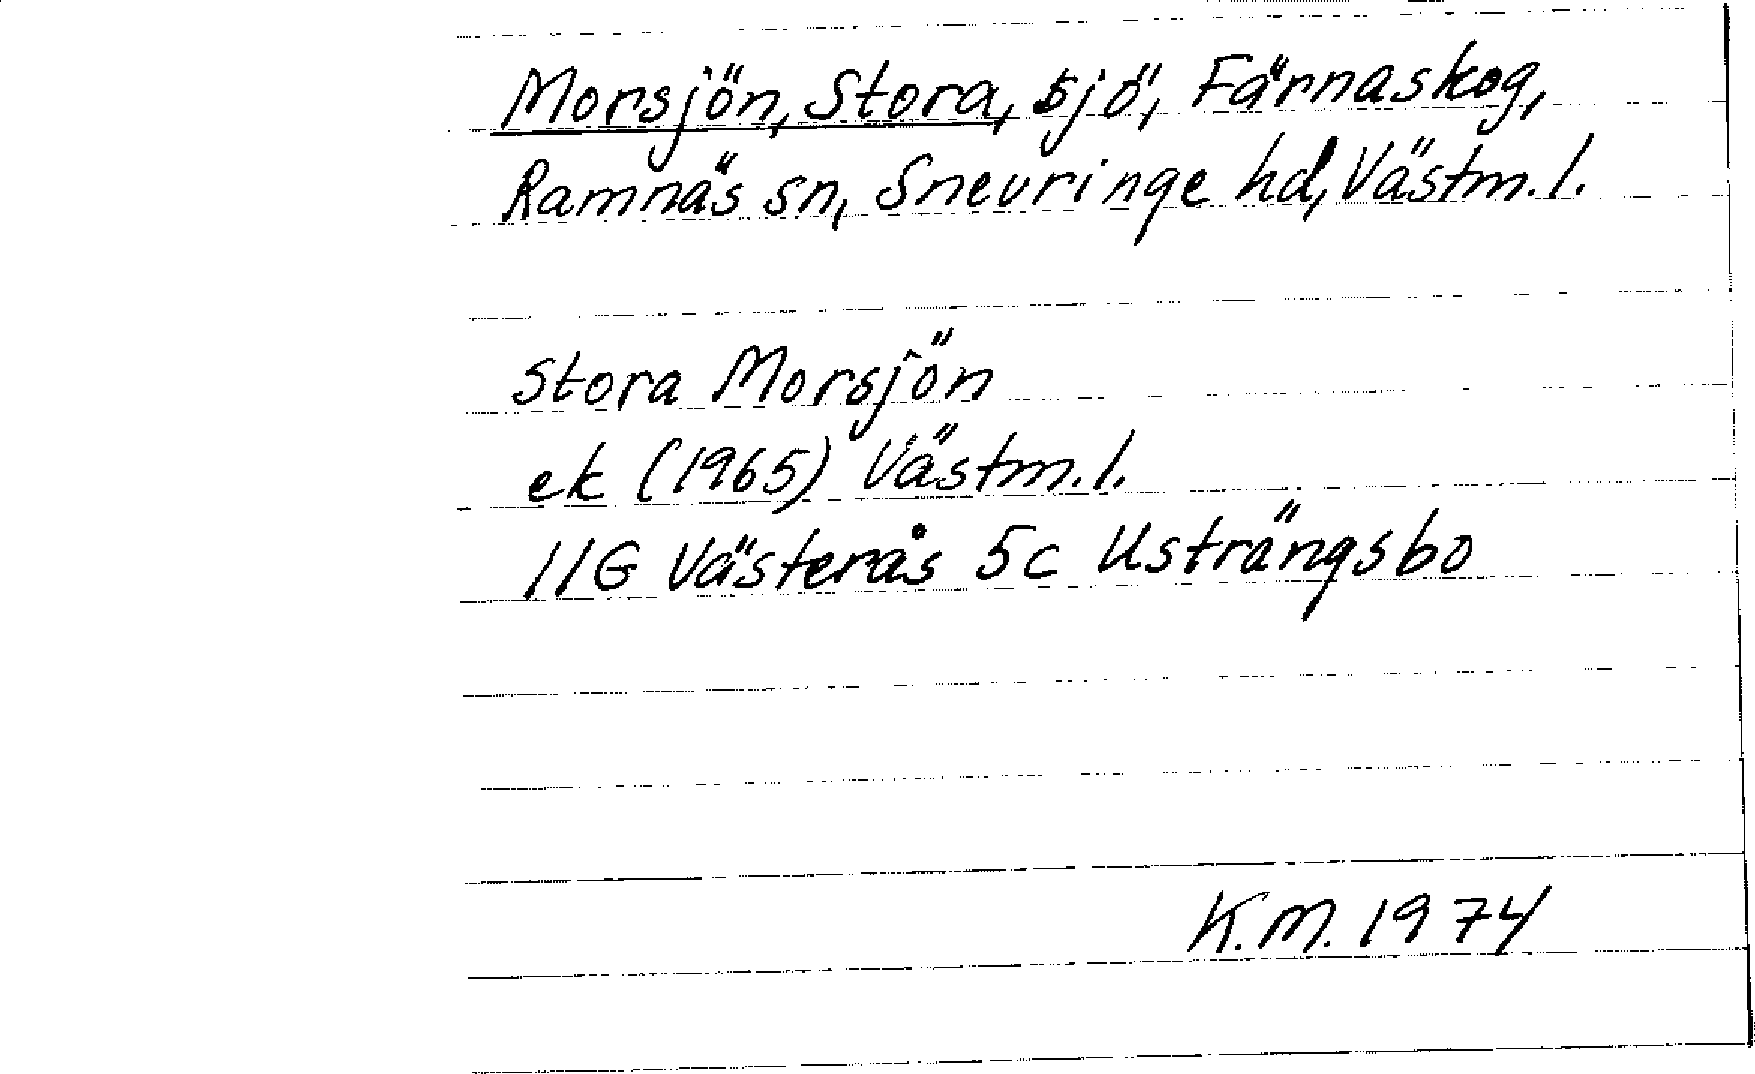 Morsjön, Stora, sjö, Färnaskog,
Ramnäs sn, Snevringe hd, Västm.l.
Stora Morsjön
ek (1965) Västm.l.
11G Västerås 5c Usträngsbo
K.M. 1974